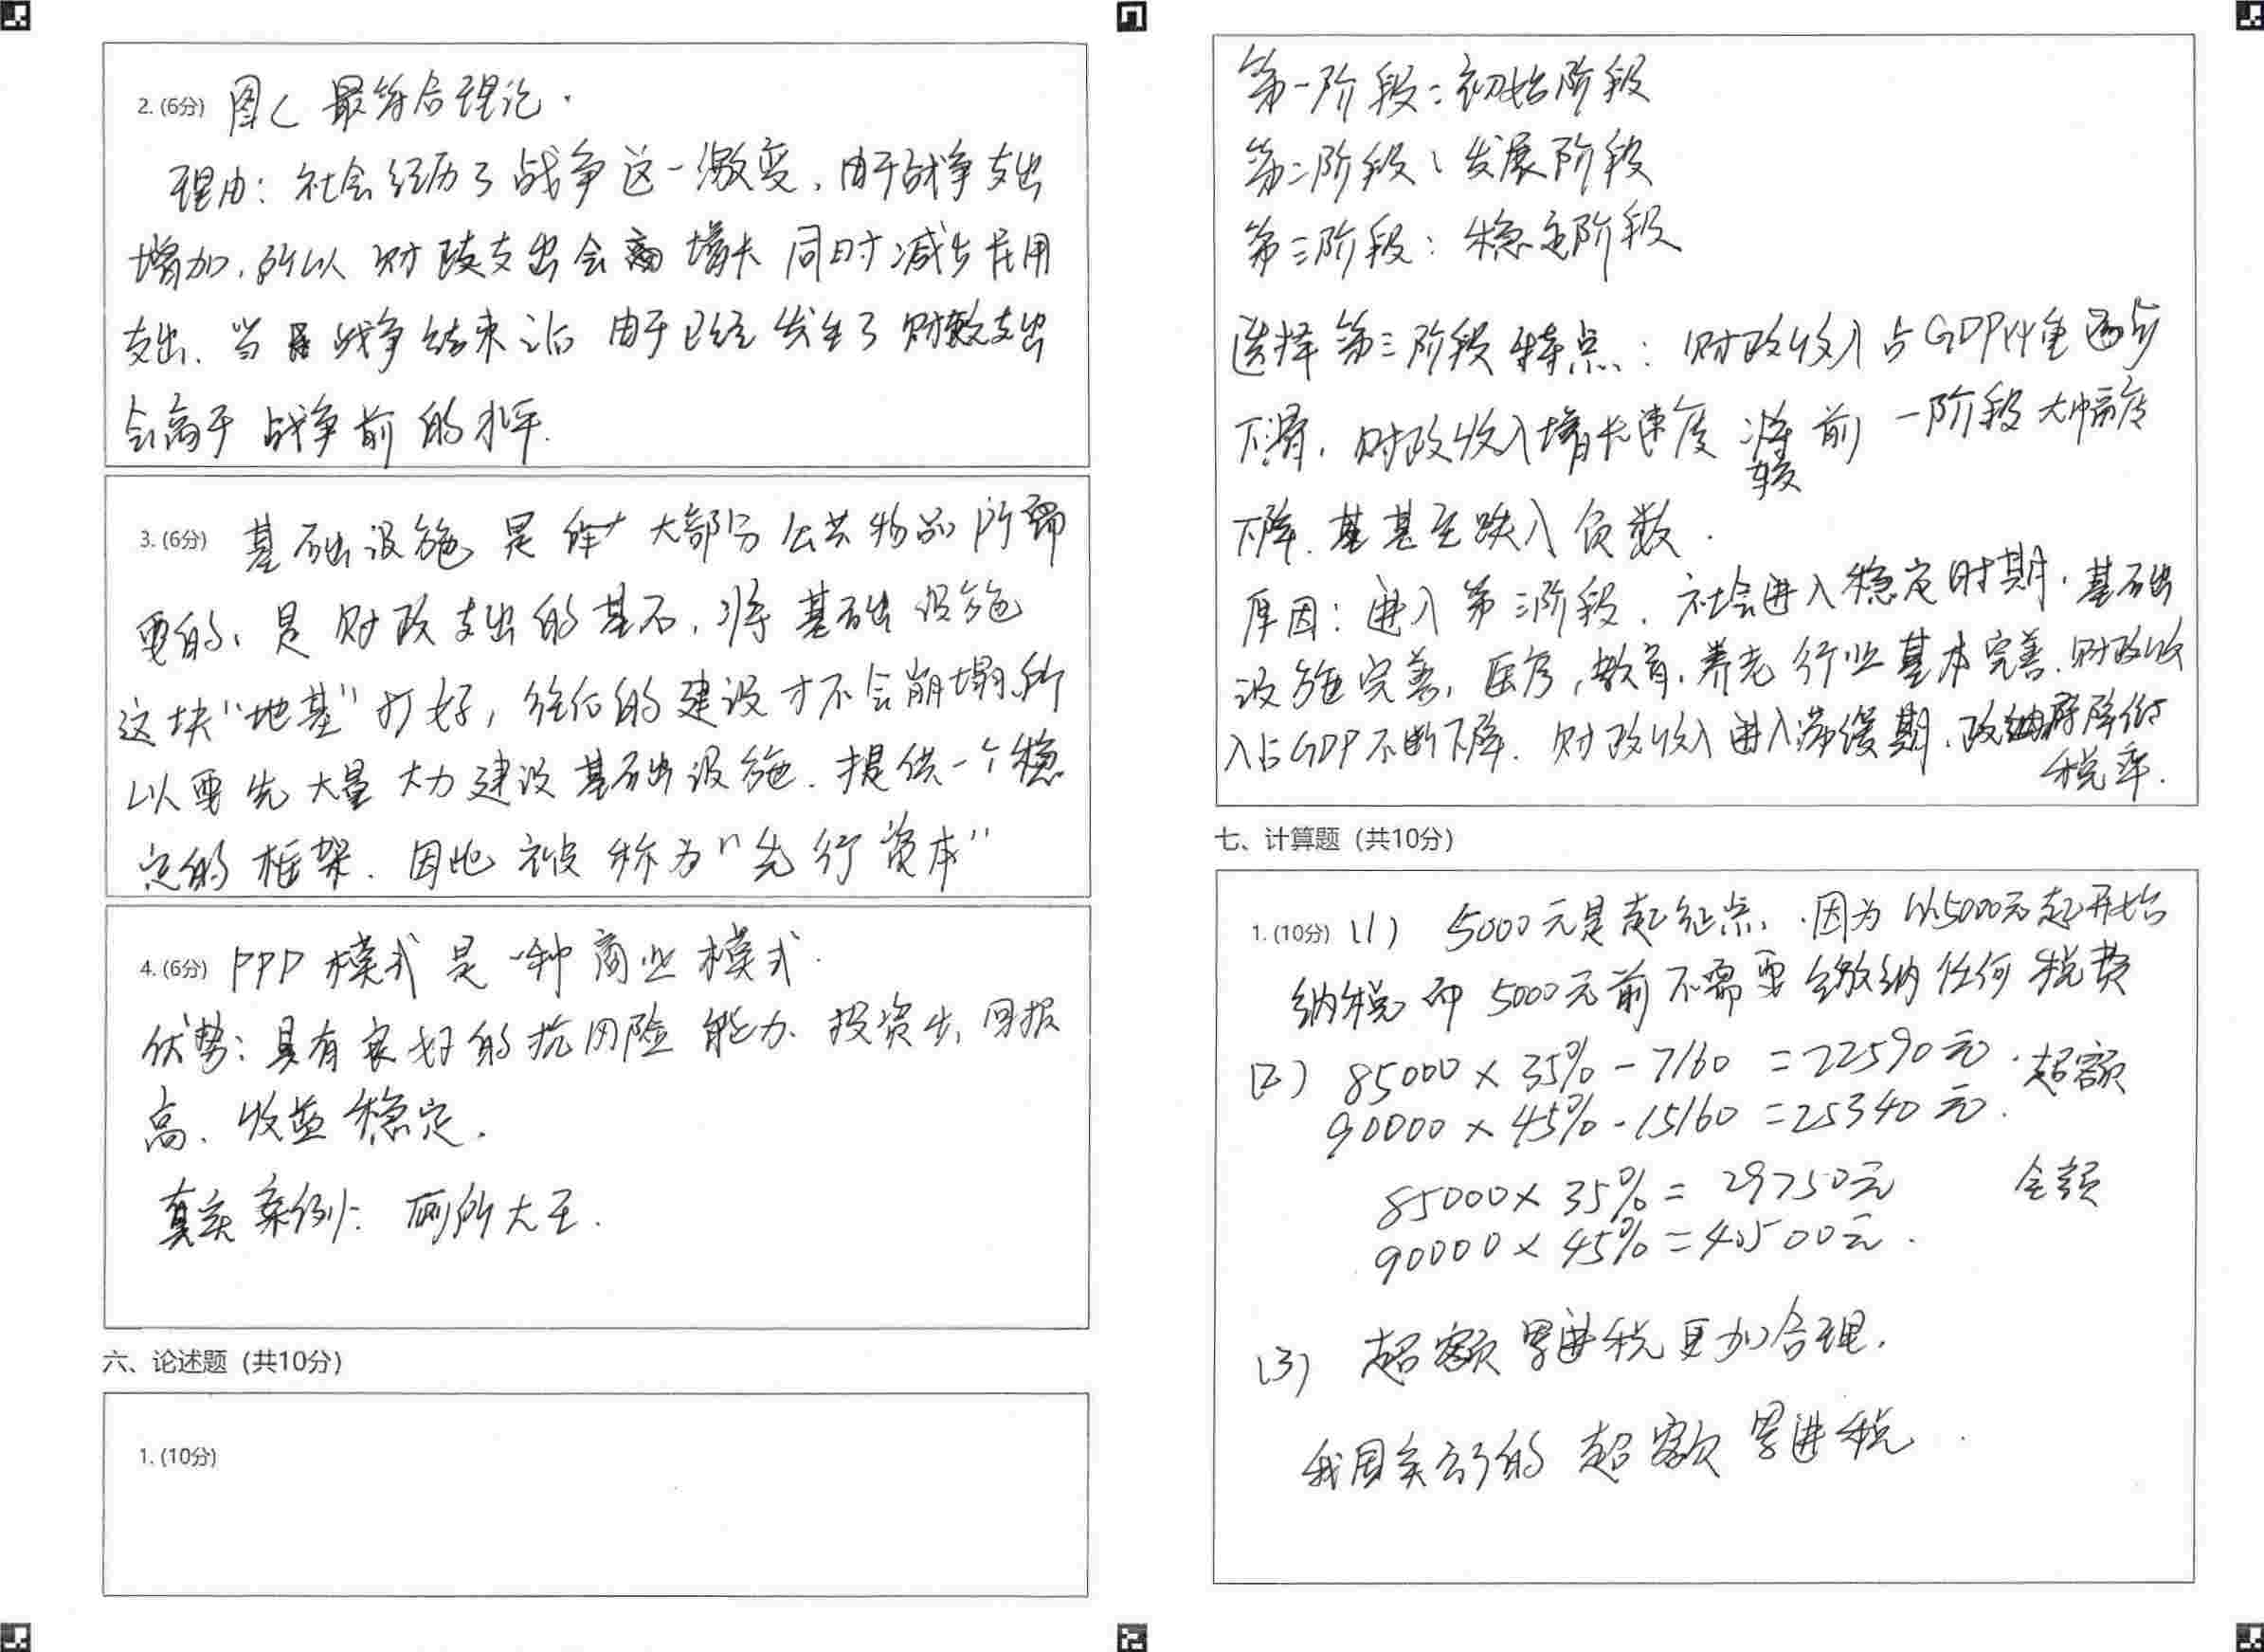 2. (6分) 图C 最符合理论.
理由: 社会经历了战争这一激变, 由于战争支出
增加, 所以财政支出会增长 同时减少民用
支出. 当战争结束之后 由于已经发生了财政支出
会高于战争前的水平.
3. (6分) 基础设施是大部分公共物品所需
要的, 是财政支出的基石, 将基础设施
这块"地基"打好, 往后的建设才不会崩塌, 所
以要先大量大力建设基础设施. 提供一个稳
定的框架. 因此被称为"先行资本"
4. (6分) PPP模式是一种商业模式.
优势: 具有良好的抗风险能力. 投资少, 回报
高、收益稳定.
真实案例: 厕所大王.
六、论述题 (共10分)
1. (10分)
第一阶段: 初始阶段
第二阶段: 发展阶段
第三阶段: 稳定阶段
选择第三阶段特点: 财政收入占GDP比重逐步
下滑, 财政收入增长速度 较 前一阶段大幅度
下降. 甚至跌入负数.
原因: 进入第三阶段, 社会进入稳定时期, 基础
设施完善, 医疗, 教育, 养老行业基本完善. 财政收
入占GDP不断下降. 财政收入进入滞缓期, 政府降低
税率.
七、计算题 (共10分)
1. (10分) (1) 5000元是起征点, 因为从5000元起开始
纳税 而5000元前不需要缴纳任何税费
(2) 85000×35%-7160 =22590元. 超额
90000×45%-15160 =25340元.
85000×35%= 29750元 全额
90000×45%=40500元.
(3) 超额累进税更加合理.
我国实行的超额累进税.